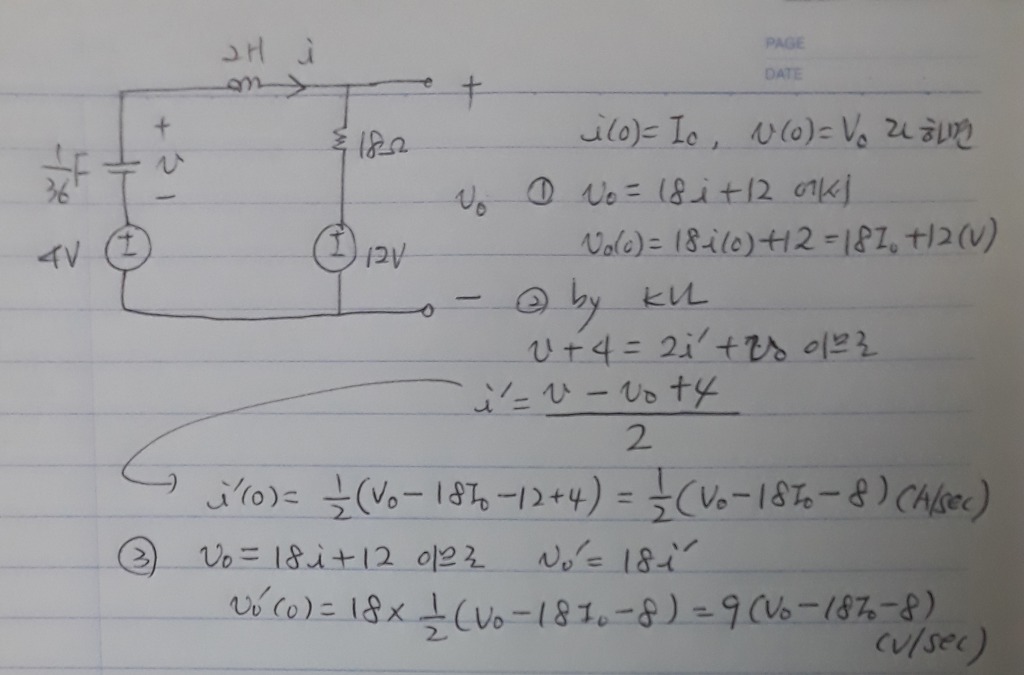 PAGE
DATE
2H i
+
1/36 F + v -
18Ω
4V
12V
v₀
-
i(0) = I₀, v(0) = V₀ 라 하면
① v₀ = 18i + 12 에서
v₀(0) = 18i(0) + 12 = 18I₀ + 12 (V)
② by KVL
v + 4 = 2i′ + v₀ 이므로
i′ = (v - v₀ + 4)/2
i′(0) = 1/2 (V₀ - 18I₀ - 12 + 4) = 1/2 (V₀ - 18I₀ - 8) (A/sec)
③ v₀ = 18i + 12 이므로 v₀′ = 18i′
v₀′(0) = 18 × 1/2 (V₀ - 18I₀ - 8) = 9(V₀ - 18I₀ - 8)
(V/sec)